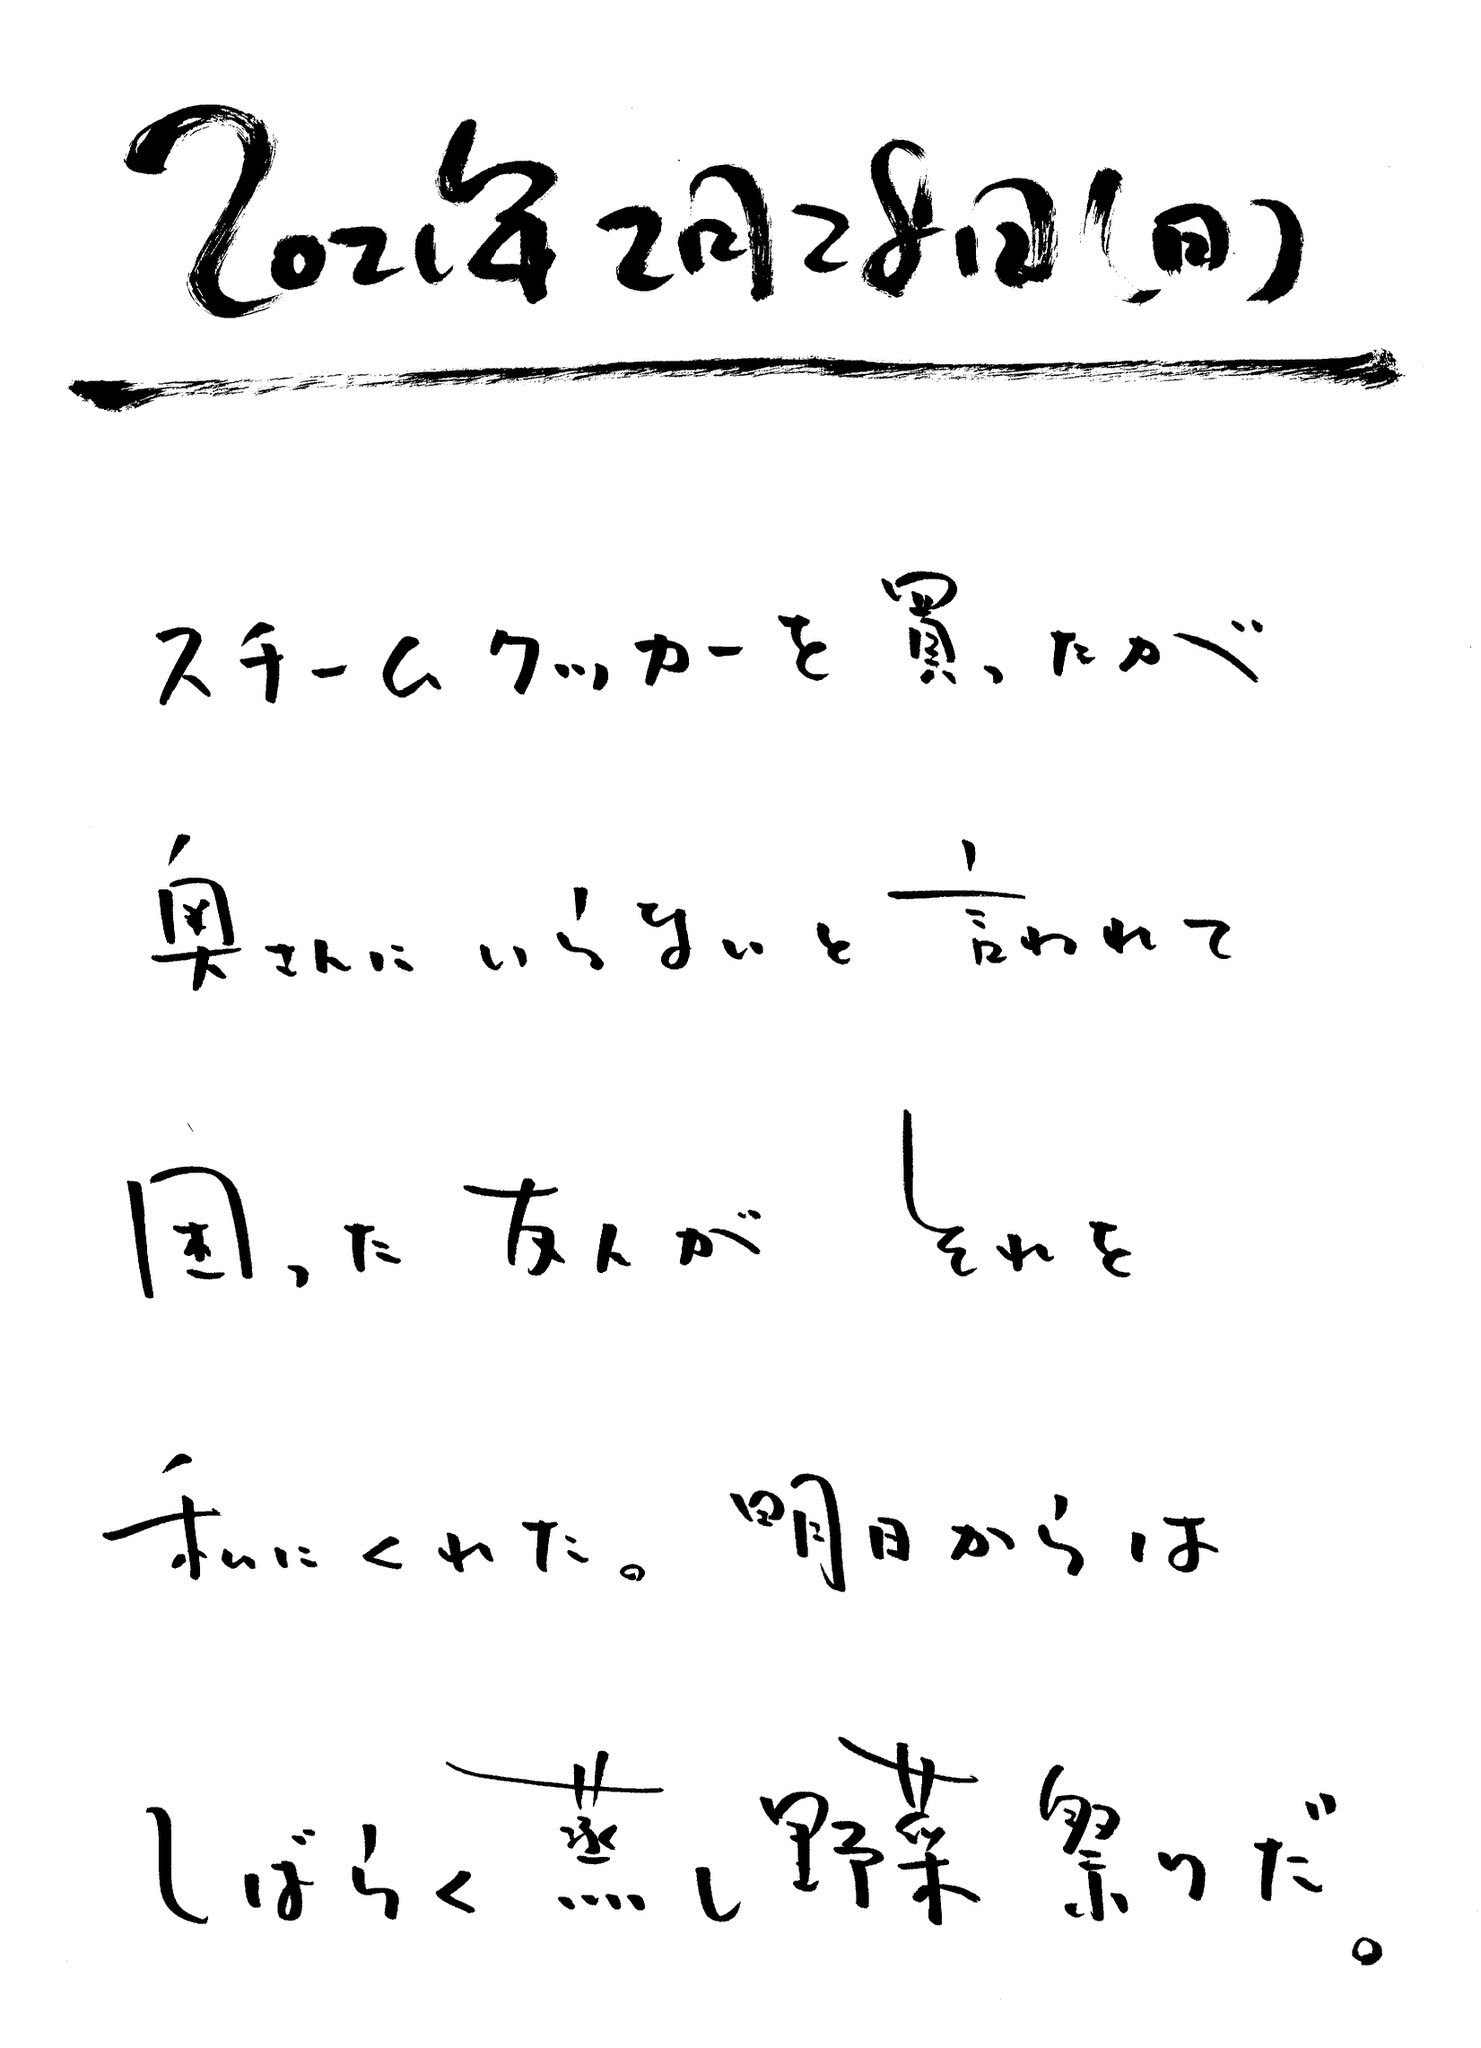 2021年2月28日(日)
スチームクッカーを買ったが
奥さんにいらないと言われて
困った友人がそれを
私にくれた。明日からは
しばらく蒸し野菜祭りだ。